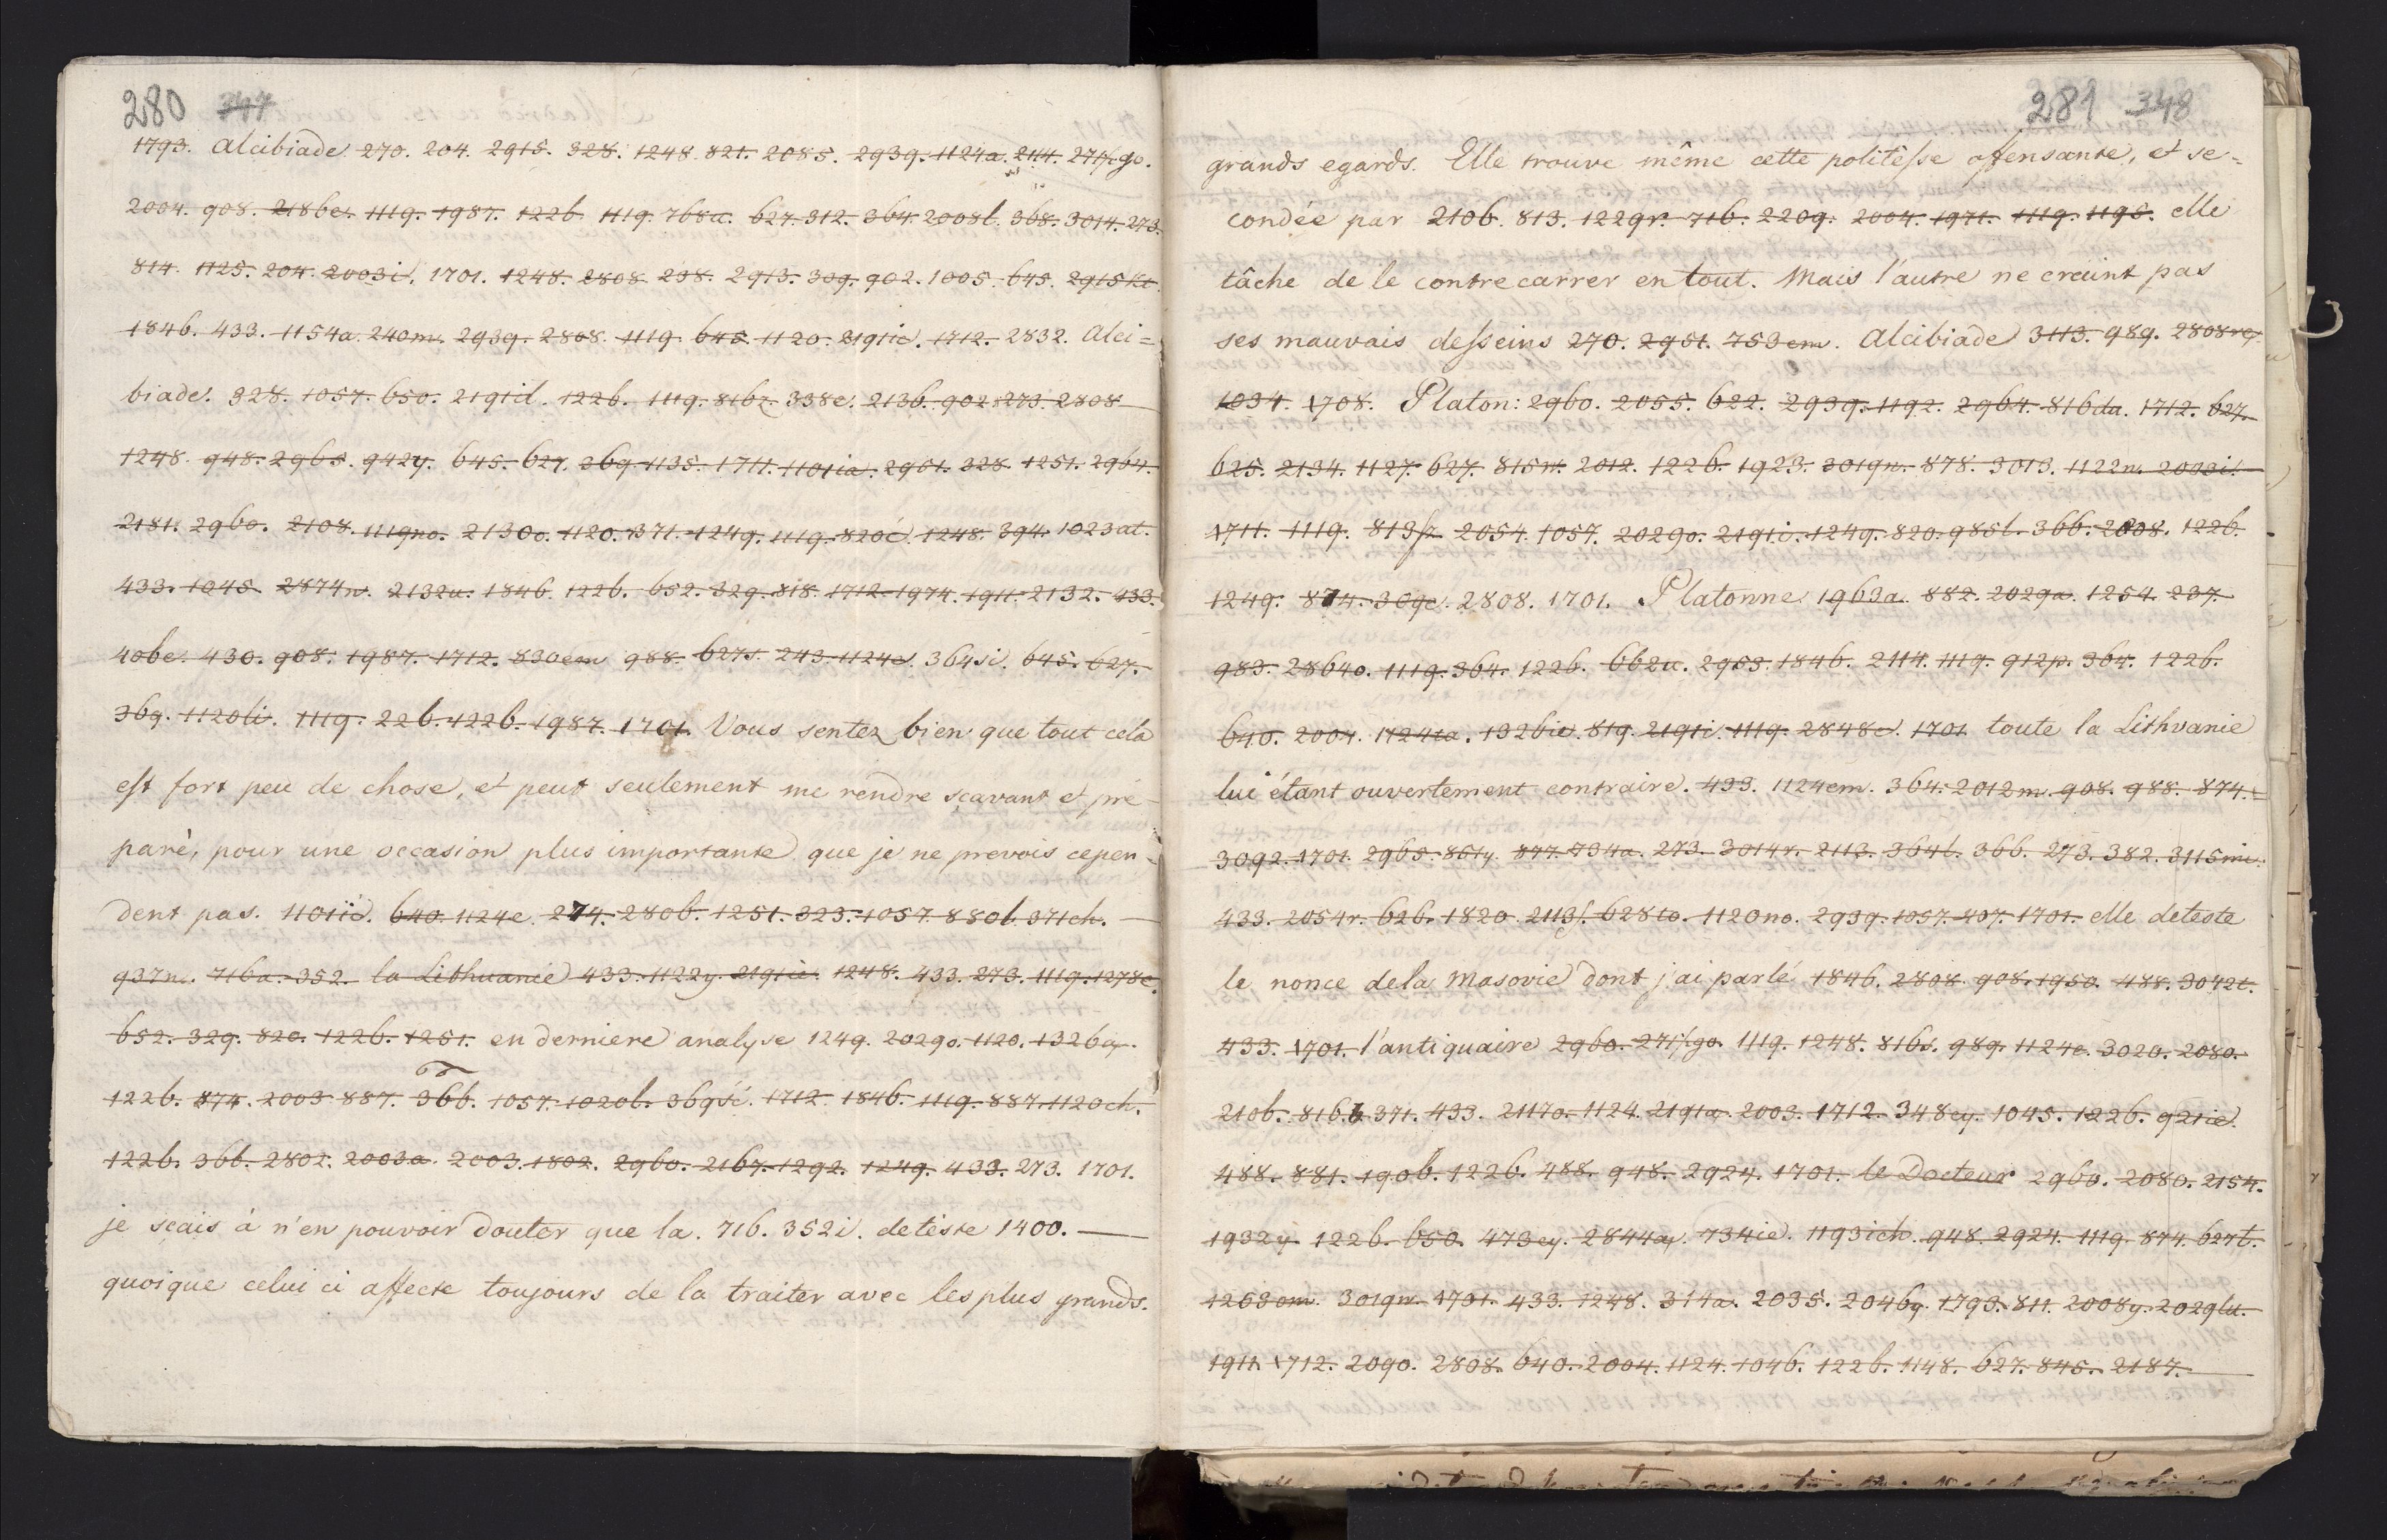 280 347
1793. Alcibiade 270. 204. 2915. 328. 1248. 821. 2085. 2939. 1124a. 2114. 271/go.
2004. 908. 2186ei. 1119. 1987. 1226. 1119. 768a. 627. 312. 364. 2008l. 368. 3014. 273.
814. 1125. 204. 2003i. 1701. 1248. 2808. 238. 2913. 309. 902. 1005. 645. 2915kt
1846. 433. 1154a. 240m. 2939. 2808. 1119. 645. 1120. 2191ie. 1712. 2832. Alci=
biade. 328. 1057. 650. 2191il. 1226. 1119. 816z. 338e. 2136. 902. 273. 2808
1248. 948. 2965. 942y. 645. 627. 369. 1135. 1711. 1101ia. 2961. 328. 1251. 2964.
2181. 2960. 2108. 1119no. 2130o. 1120. 371. 1249. 1119. 820é. 1248. 394. 1023at.
433. 1045. 2874n. 2132u. 1846. 1226. 652. 329. 818. 1712. 1974. 1911. 2132. 433.
406e. 430. 908. 1987. 1712. 830em 988. 627s. 243. 1124e. 364si. 645. 627.
369. 1120li. 1119. 226. 1226. 1987. 1701. Vous sentez bien que tout cela
est fort peu de chose, et peut seulement me rendre sçavant et pré-
paré, pour une occasion plus importante que je ne prevois cepen-
dent pas. 1101iè. 640. 1124e. 274. 2806. 1251. 323. 1057. 880l. 371ch.
937n. 716a. 352. la Lithuanie 433. 1122y. 2191ie. 1248. 433. 273. 1119. 1278e.
652. 329. 820. 1226. 1251. en derniere analyse 1249. 2029o. 1120. 1326y.
1226. 874. 2003. 887. 366. 1057. 1020l. 369śi. 1712. 1846. 1119. 887. 1120ch.
1226. 366. 2802. 2003a. 2003. 1802. 2960. 2167. 1292. 1249. 433. 273. 1701.
je sçais à n'en pouvoir douter que la. 716. 352i. deteste 1400.
quoique celui ci affecte toujours de la traiter avec les plus grands.
281 348
grands egards. Elle trouve même cette politesse offensante, et se=
condée par 2106. 813. 1229r. 716. 2209. 2004. 1971. 1119. 1195. elle
tâche de le contrecarrer en tout. Mais l'autre ne creint pas
ses mauvais desseins 270. 2951. 753em. Alcibiade 3113. 989. 2808rej
1034. 1708. Platon: 2960. 2055. 622. 2939. 1192. 2964. 816da. 1712. 627.
625. 2134. 1127. 627. 815n. 2012. 1226. 1923. 3019n. 878. 3013. 1122n. 2003i.
1711. 1119. 813sz. 2054. 1057. 2029o. 2191i. 1249. 820. 985l. 366. 2808. 1226.
1249. 874. 309e. 2808. 1701. Platonne 1963a. 882. 2029a. 1254. 237.
983. 2864o. 1119. 364. 1226. 662u. 2953. 1846. 2114. 1119. 912p. 364. 1226.
640. 2004. 1124ta. 1326ie. 819. 2191i. 1119. 2848e. 1701 toute la Lithvanie
lui étant ouvertement contraire. 433. 1124em. 364. 2012m. 908. 988. 874.
3092. 1701. 2965. 861y. 877. 734a. 273. 3014r. 2113. 364l. 366. 273. 382. 3115mi.
433. 2054r. 626. 1820. 2113f. 628to. 1120no. 2939. 1057. 407. 1701. elle deteste
le nonce dela Masovie dont j'ai parlé 1846. 2808. 908. 1950. 488. 3042t.
433. 1701. l'antiquaire 2960. 271/go. 1119. 1248. 816s. 989. 1124e. 3020. 2080.
2106. 816. 371. 433. 2117o. 1124. 2191a. 2003. 1712. 348ey. 1045. 1226. 921ie.
488. 881. 1906. 1226. 488. 948. 2924. 1701. le Docteur 2960. 2080. 2154.
1932y. 1226. 650. 473ey. 2844ay. 734ie. 1193ich. 948. 2924. 1119. 874. 627t.
1263om. 3019n. 1701. 433. 1248. 314a. 2035. 2046y. 1793. 811. 2008y. 2029lu.
1911. 1712. 2090. 2808. 640. 2004. 1124. 1046. 1226. 1148. 627. 845. 2187.